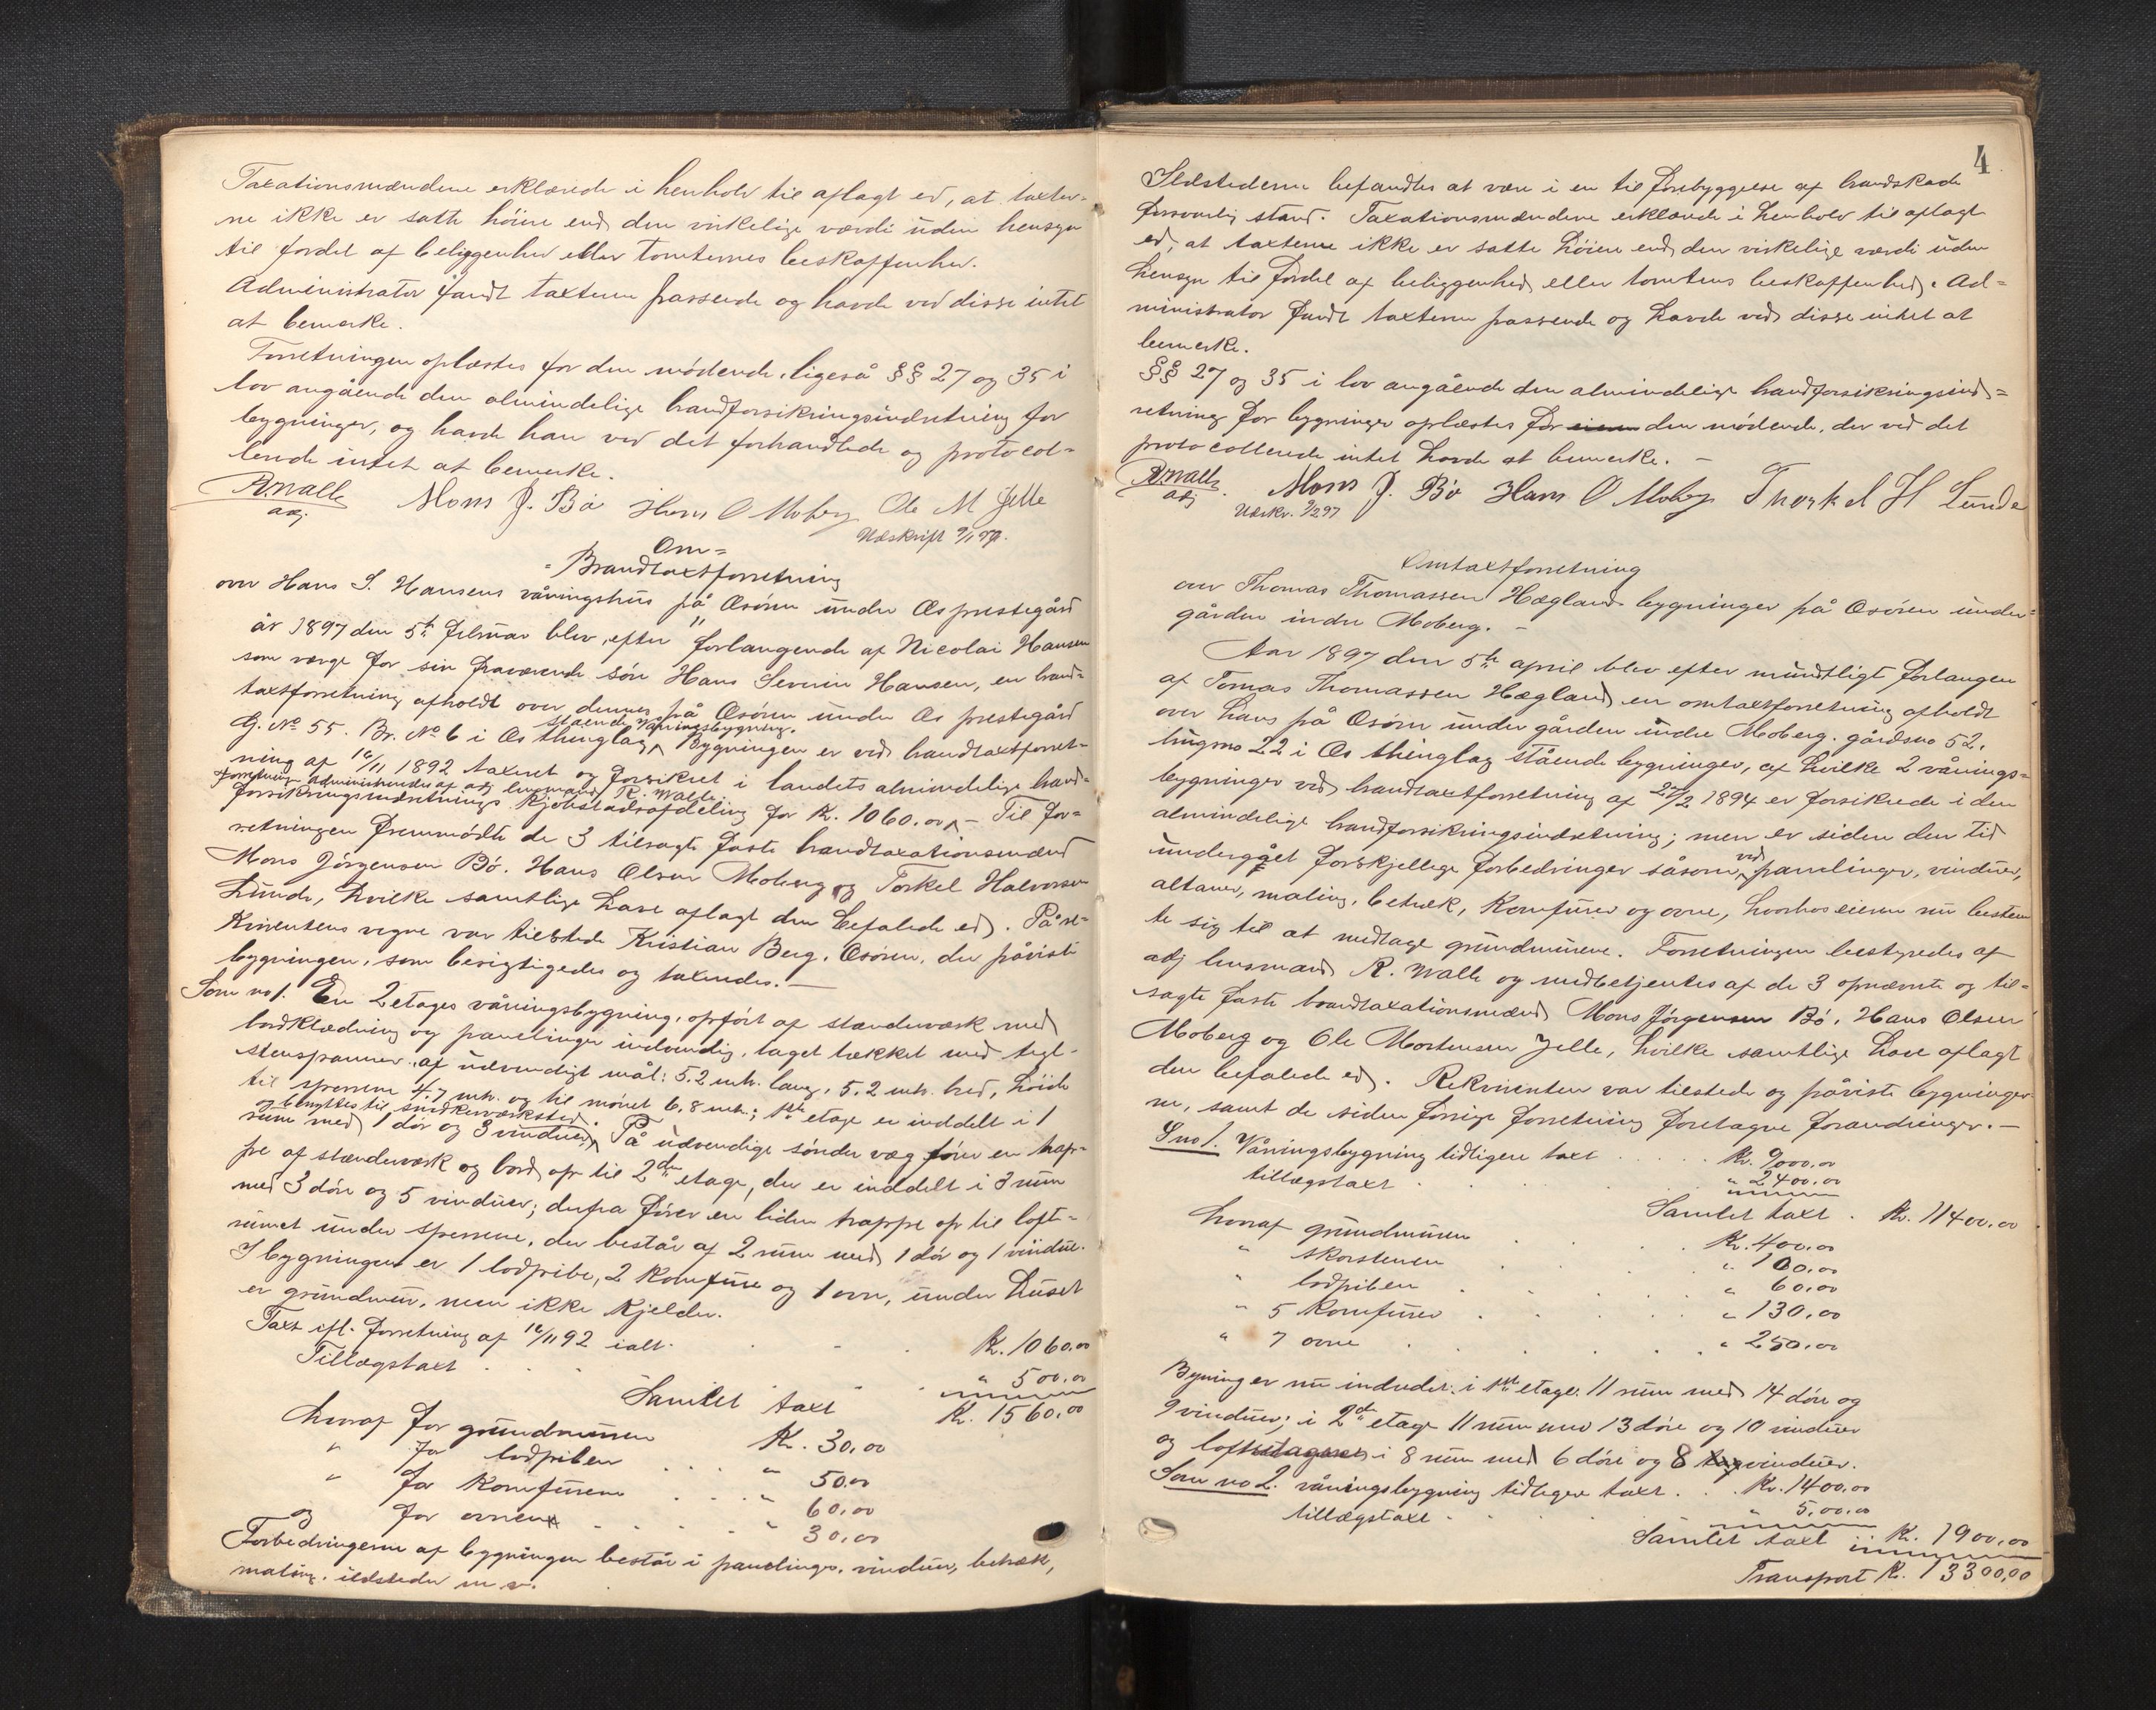 Taxationsmændene erklærede i henhold til aflagt ed, at taxter-
ne ikke er satte høiere end den virkelige værdi uden hensyn
til fordel af beliggenhed eller tomternes beskaffenhed.
Administrator fandt taxterne passende og havde ved disse intet
at bemerke.
Forretningen oplæstes for den mødende, ligeså §§ 27 og 35 i
lov angående den almindelige brandforsikringsindretning for
bygninger, og havde han ved det forhandlede og protocol-
lerede intet at bemerke.
R. Walle Mons J. Bø Hans O Moberg Ole M Jelle
adj.
Udskrift
Om-
Brandtaxtforretning
over Hans S. Hansens våningshus på Osøren under Os prestegård
år 1897 den 5te februar blev, efter forlangende af Nicolai Hansen
som værge for sin fraværende søn Hans Severin Hansen, en brand-
taxtforretning afholdt over dennes på Osøren under Os prestegård
G. No 55. Br. No 6 i Os thinglag stående våningsbygning. Bygningen er ved brandtaxtforret-
ning af 16/11 1892 taxeret og forsikret i landets almindelige brand-
forretningen administreredes af adj lensmand R. Walle.
forsikringsindretnings kjøbstadsafdeling for Kr. 1060.00 – Til for-
retningen fremmødte de 3 tilsagte faste brandtaxationsmænd
Mons Jørgensen Bø, Hans Olsen Moberg og Torkel Halvorsen
Lunde, hvilke samtlige have aflagt den befalede ed. På re-
kvirentens vegne var tilstede Kristian Berg, Osøren, der påviste
bygningen, som besigtigedes og taxeredes. –
Som no 1. En 2 etages våningsbygning, opført af stænderværk med
bordklædning og panelinger indvendig, taget tækket med tegl-
stenspanner, af udvendigt mål: 5.2 mtr. lang, 5.2 mtr. bred, høide
til sperrene 4.7 mtr. og til mønet 6.8 mtr; 1ste etage er inddelt i 1
og benyttes til snedkerværksted.
rum med 1 dør og 3 vinduer. På udvendige søndre væg fører en trap-
pe af stænderværk og bord op til 2den etage, der er inddelt i 3 rum
med 3 døre og 5 vinduer; derfra fører en liden trappe op til lofts-
rummet under sperrene, der består af 2 rum med 1 dør og 1 vindue.
I bygningen er 1 lodpibe, 2 komfure og 1 ovn, under huset
er grundmur, men ikke kjelder.
Taxt ifl. forretning af 16/11 92 ialt . . . Kr. 1060.00
Tillægstaxt . . . " 500.00
Samlet taxt Kr. 1560.00
hvoraf for grundmuren Kr. 30.00
" for lodpiben . . . " 50.00
" for komfurene . . . " 60.00
og for ovnen . . . " 30.00
Forbedringerne af bygningen består i panelinger, vinduer, betræk,
maling, ildsteder m. v.
4
Ildstederne befandtes at være i en til forebyggelse af brandskade
forsvarlig stand. Taxationsmændene erklærede i henhold til aflagt
ed, at taxterne ikke er satte høiere end den virkelige værdi uden
hensyn til fordel af beliggenhed eller tomtens beskaffenhed. Ad-
ministrator fandt taxterne passende og havde ved disse intet at
bemerke.
§§ 27 og 35 i lov angående den almindelige brandforsikringsind-
retning for bygninger oplæstes for den mødende, der ved det
protocollerede intet havde at bemerke. –
R. Walle Mons J. Bø Hans O Moberg Thorkel H Lunde
adj
Udskr.
Omtaxtforretning
over Thomas Thomassen Hægland bygninger på Osøren under
gården indre Moberg. –
Aar 1897 den 5te april blev efter mundtligt forlangen
af Tomas Thomassen Hægland en omtaxtforretning afholdt
over hans på Osøren under gården indre Moberg, gårdsno 52,
brugsno 22 i Os thinglag stående bygninger, af hvilke 2 vånings-
bygninger ved brandtaxtforretning af 27/2 1894 er forsikrede i den
almindelige brandforsikringsindretning; men er siden den tid
undergået forskjellige forbedringer såsom ved panelinger, vinduer,
altaner, maling, betræk, komfurer og ovne, hvorhos eieren nu bestem
te sig til at medtage grundmurene. Forretningen bestyredes af
adj lensmand R. Walle og medbetjentes af de 3 opnævnte og til-
sagte faste brandtaxationsmænd Mons Jørgensen Bø, Hans Olsen
Moberg og Ole Mortensen Jelle, hvilke samtlige have aflagt
den befalede ed. Rekvirenten var tilstede og påviste bygninger-
ne, samt de siden forrige forretning foretagne forandringer. –
S no 1. Våningsbygning tidligere taxt . . . Kr. 9000.00
tillægstaxt . . . " 2400.00
Samlet taxt . Kr. 11400.00
hvoraf grundmuren . . . Kr. 400.00
" skorstenen . . . " 100.00
" lodpiben . . . " 60.00
" 5 komfurer . . . " 130.00
" 7 ovne . . . " 250.00
Bygning er nu inndredet i 1ste etage: 11 rum med 14 døre og
9 vinduer; i 2den etage 11 rum med 13 døre og 10 vinduer
og loft i 8 rum med 6 døre og 8 vinduer.
Som no 2. våningsbygning tidligere taxt . . Kr. 1400.00
tillægstaxt . . . " 500.00
Samlet taxt Kr. 1900.00
Transport Kr. 13300.00